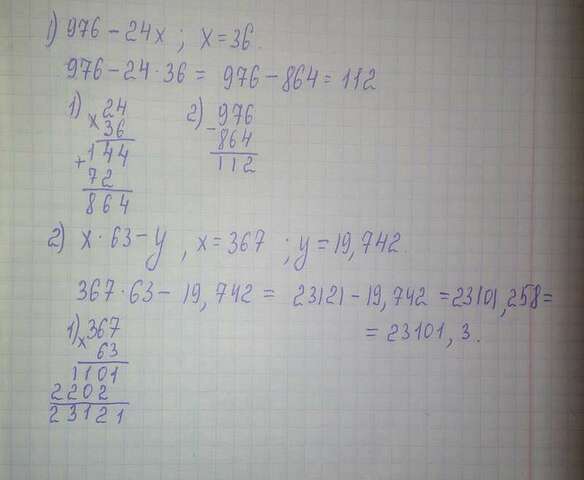 1) 976 – 24x ; x = 36.
976 – 24 · 36 = 976 – 864 = 112
1) 24
x 36
+ 144
72
864
2) 976
– 864
112
2) x · 63 – y , x = 367 ; y = 19,742.
367 · 63 – 19,742 = 23121 – 19,742 = 23101,258 =
= 23101,3.
1) 367
x 63
1101
2202
23121